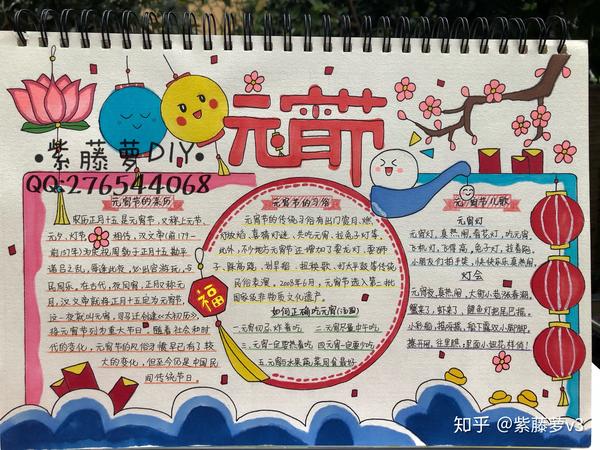 元宵节
•紫藤萝DIY•
QQ:276544068
元宵节的来历
农历正月十五是元宵节，又称上元节、
元夕、灯节。相传，汉文帝（前179—
前157年）为庆祝周勃于正月十五勘平
诸吕之乱，每逢此夜，必出宫游玩，与
民同乐，在古代，夜同宵，正月又称元
月，汉文帝就将正月十五定为元宵节，
这一夜就叫元宵。司马迁创建《太初历》，
将元宵节列为重大节日。随着社会和时
代的变化，元宵节的风俗习惯早已有了较
大的变化，但至今仍是中国民
间传统节日。
元宵节的习俗
元宵节的传统习俗有出门赏月、燃
灯放焰、喜猜灯谜、共吃元宵、拉兔子灯等。
此外，不少地方元宵节还增加了耍龙灯、耍狮
子、踩高跷、划旱船、扭秧歌、打太平鼓等传统
民俗表演。2008年6月，元宵节选入第二批
国家级非物质文化遗产。
如何正确吃元宵（汤圆）
一元宵切忌炸着吃 二元宵尽量中午吃
三元宵一定要热着吃 四元宵一定要少吃
五元宵与水果蔬菜同食最好
福
元宵节儿歌
元宵灯
元宵灯，真热闹，看花灯，吃元宵，
飞机灯，飞得高，兔子灯，拉着跑，
小朋友们拍手笑，快快乐乐真热闹。
灯会
元宵夜，真热闹，大街小巷张春潮。
蟹来了，虾来了，鲤鱼灯把尾巴摇。
知乎 @紫藤萝v3